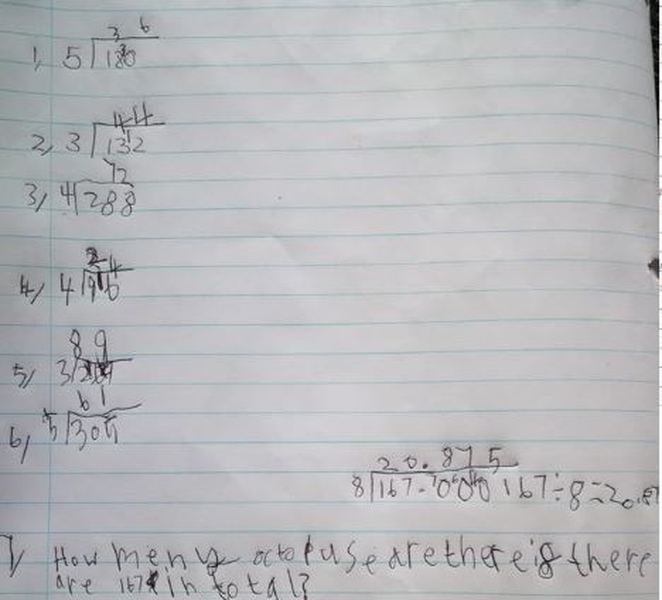 3 6
1, 5 180
44
2, 3 132
72
3, 4 288
24
4, 4 96
8 9
5, 3
61
6, 5 305
20.875
8 167.000 167÷8=20.87
7 How meny octopuse are there if there
are 167 in total?